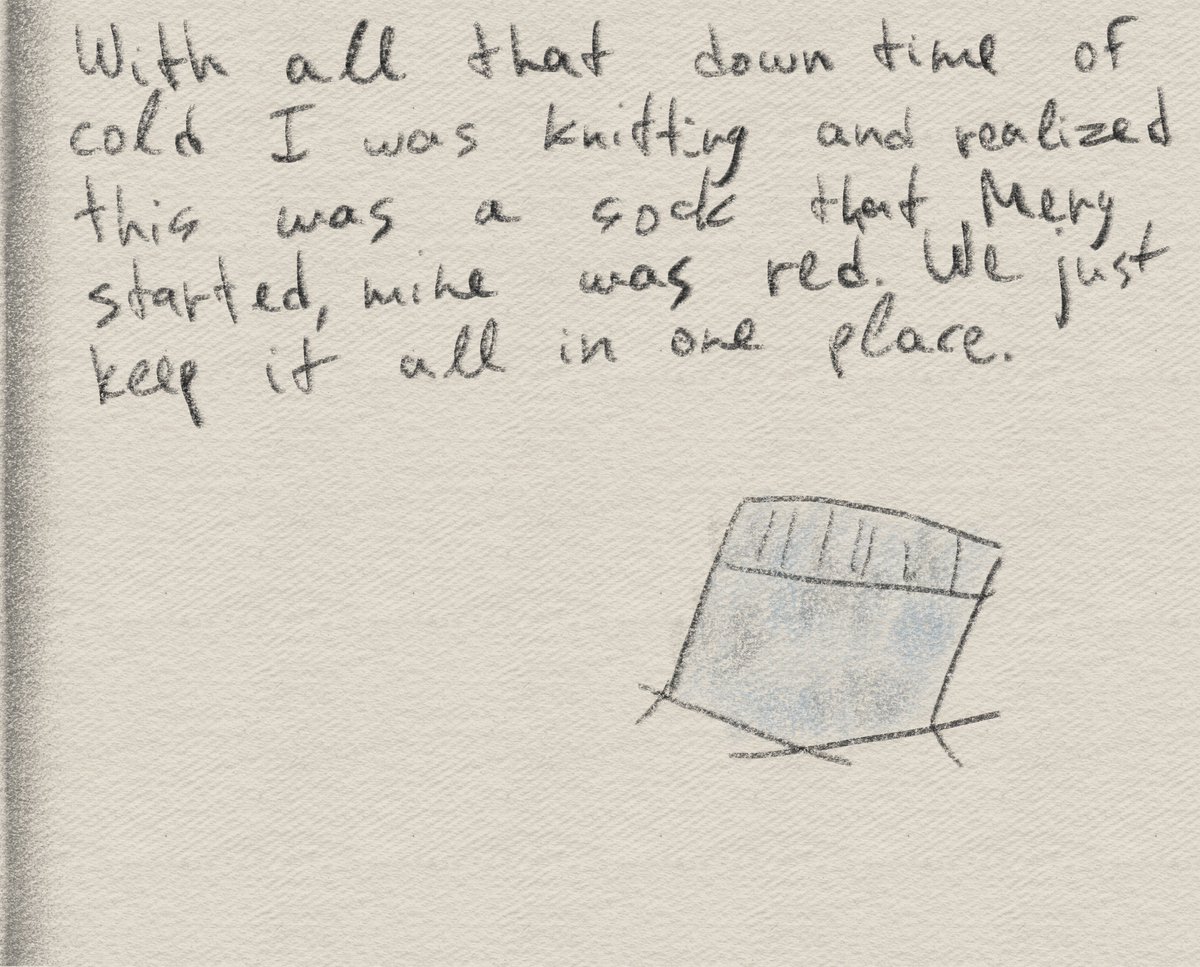 With all that down time of
cold I was knitting and realized
this was a sock that Mery
started, mine was red. We just
keep it all in one place.